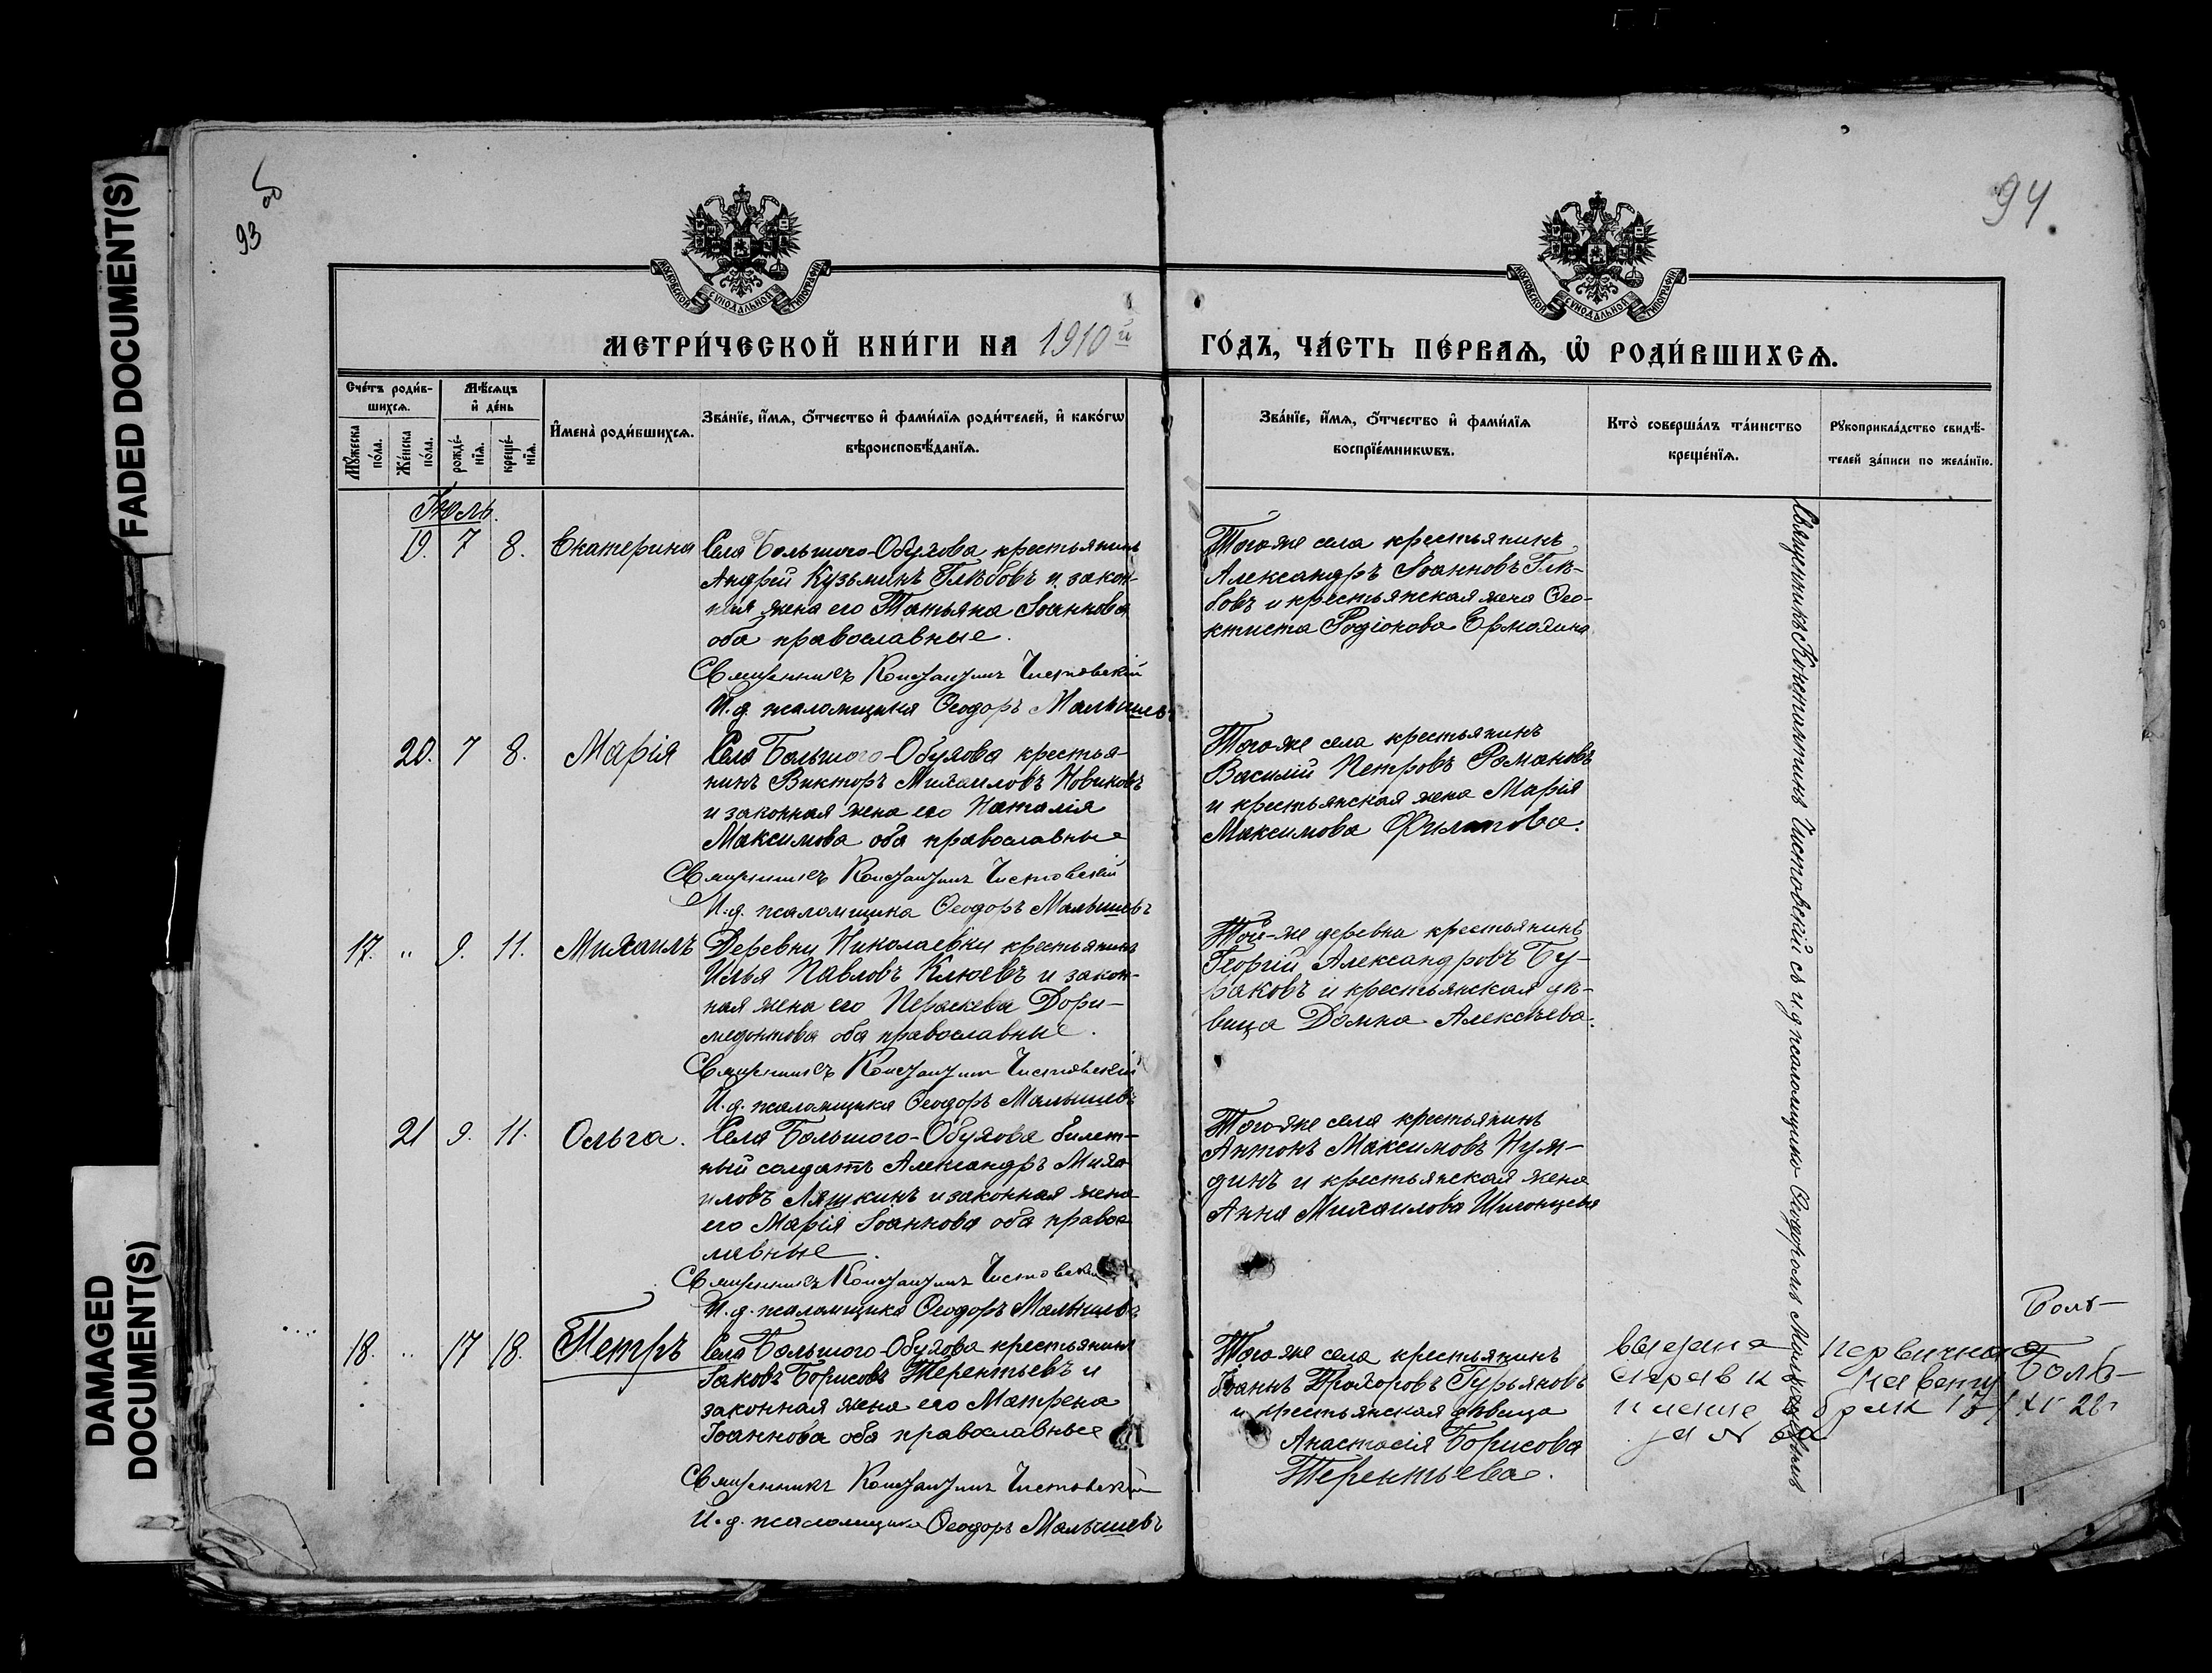 FADED DOCUMENT(S)
DAMAGED
DOCUMENT(S)
93 об
94
МОСКОВСКОЙ СУНОДАЛЬНОЙ ТИПОГРАФІИ
МОСКОВСКОЙ СУНОДАЛЬНОЙ ТИПОГРАФІИ
МЕТРИ́ЧЕСКОЙ КНИ́ГИ НА 1910й
ГО́ДЪ, ЧА́СТЬ ПЕ́РВАѦ, Ѡ҆ РОДИ́ВШИХСѦ.
Сче́тъ роди́в-
шихсѧ.
Мꙋ́жеска
по́ла.
Же́нска
по́ла.
Мѣ́сѧцъ
и҆ де́нь
рожде́-
нїѧ.
креще́-
нїѧ.
И҆мена̀ роди́вшихсѧ.
Зва́нїе, и҆́мѧ, ѻ҆́тчество и҆ фами́лїѧ роди́телей, и҆ како́гѡ
вѣроисповѣ́данїѧ.
Зва́нїе, и҆́мѧ, ѻ҆́тчество и҆ фами́лїѧ
воспрїе́мникѡвъ.
Кто̀ соверша́лъ та́инство
креще́нїѧ.
Рꙋкоприкла́дство свидѣ́-
телей за́писи по жела́нїю.
Іюль.
19. 7 8. Екатерина
Села Большого-Обухова крестьянинъ
Андрей Кузьминъ Глѣбовъ и закон-
ная жена его Татьяна Іоаннова
оба православные.
Священникъ Константинъ Чистовскій
И. д. псаломщика Ѳеодоръ Малышевъ
Того же села крестьянинъ
Александръ Іоанновъ Глѣ-
бовъ и крестьянская жена Ѳео-
ктиста Родіонова Ермохина
20. 7 8. Марія
Села Большого-Обухова крестья-
нинъ Викторъ Михаиловъ Новиковъ
и законная жена его Наталія
Максимова оба православные
Священникъ Константинъ Чистовскій
И. д. псаломщика Ѳеодоръ Малышевъ
Того же села крестьянинъ
Василій Петровъ Романовъ
и крестьянская жена Марія
Максимова Филатова.
17. " 9. 11. Михаилъ
Деревни Николаевки крестьянинъ
Илья Павловъ Клюевъ и закон-
ная жена его Параскева Дори-
медонтова оба православные.
Священникъ Константинъ Чистовскій
И. д. псаломщика Ѳеодоръ Малышевъ
Той-же деревни крестьянинъ
Георгій Александровъ Бу-
раковъ и крестьянская дѣ-
вица Домна Алексѣева.
21 9. 11. Ольга.
Села Большого-Обухова билет-
ный солдатъ Александръ Миха-
иловъ Ляшкинъ и законная жена
его Марія Іоаннова оба право-
лавные.
Священникъ Константинъ Чистовскій
И. д. псаломщика Ѳеодоръ Малышевъ
Того же села крестьянинъ
Антонъ Максимовъ
и крестьянская жена
Анна Михаилова
18. " 17 18. Петръ
Села Большого-Обухова крестьянинъ
Іаковъ Борисовъ Терентьевъ и
законная жена его Матрена
Іоаннова оба православные
Священникъ Константинъ Чистовскій
И. д. псаломщика Ѳеодоръ Малышевъ
Того же села крестьянинъ
Іоаннъ Прохоровъ Гурьяновъ
и крестьянская дѣвица
Анастасія Борисова
Терентьева.
Священникъ Константинъ Чистовскій съ и. д. псаломщика Ѳеодоромъ Малышевымъ
выдана
справка